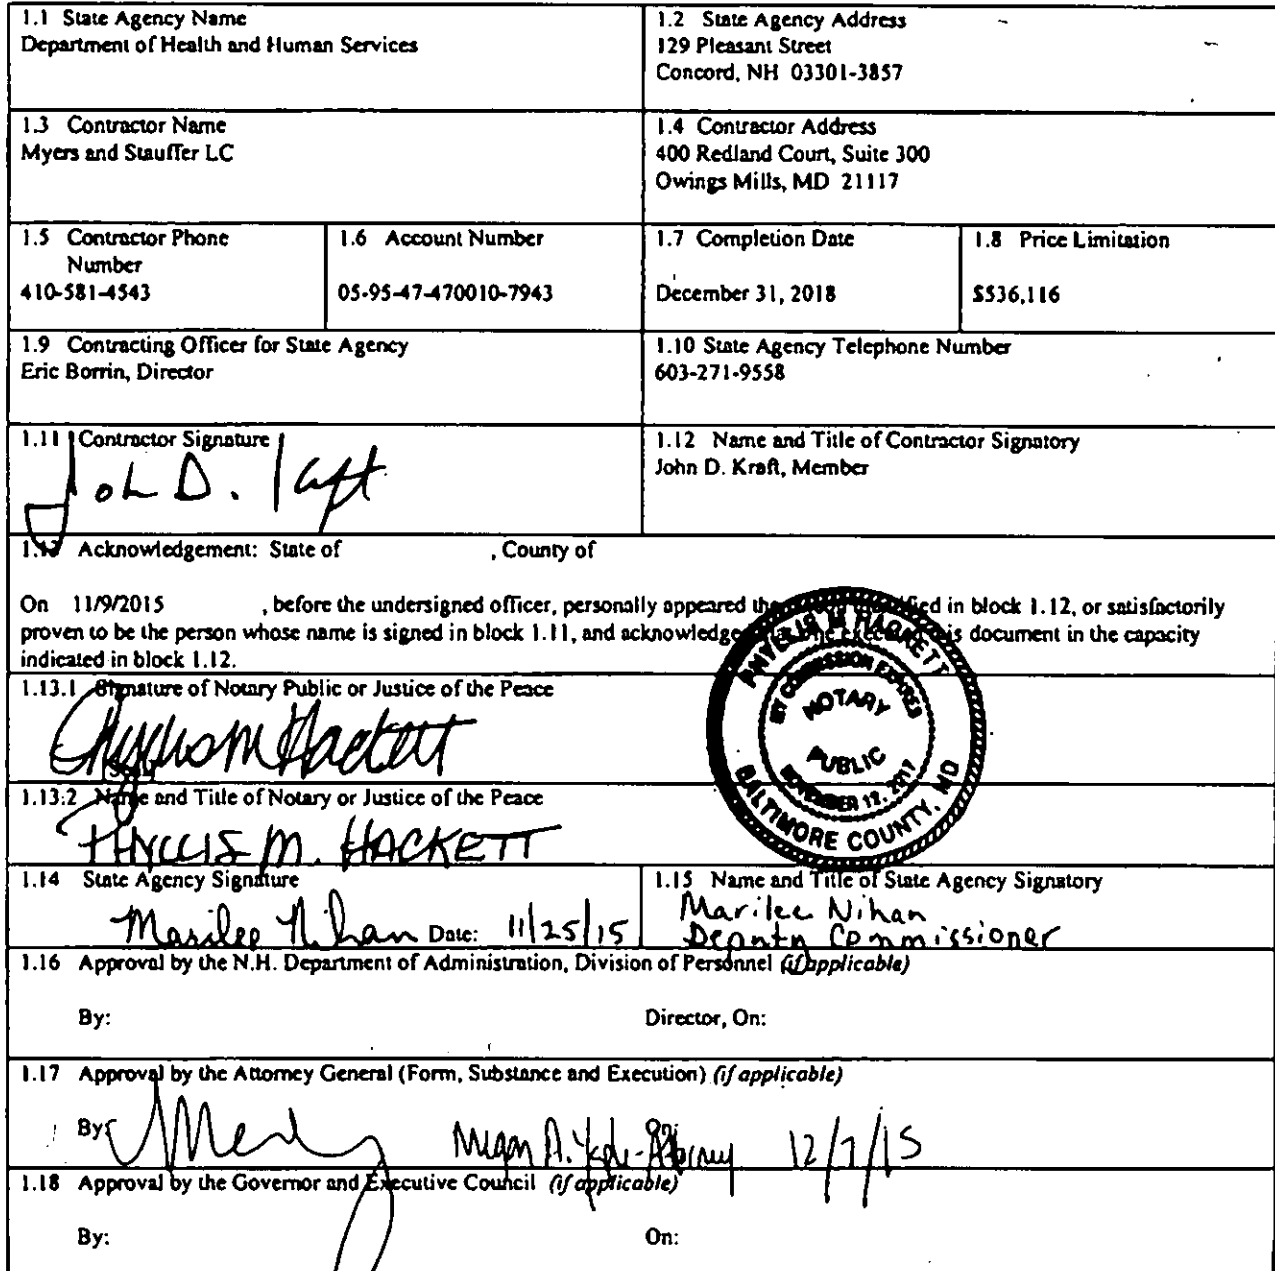 1.1 State Agency Name
Department of Health and Human Services
1.2 State Agency Address
129 Pleasant Street
Concord, NH 03301-3857
1.3 Contractor Name
Myers and Stauffer LC
1.4 Contractor Address
400 Redland Court, Suite 300
Owings Mills, MD 21117
1.5 Contractor Phone
Number
410-581-4543
1.6 Account Number
05-95-47-470010-7943
1.7 Completion Date
December 31, 2018
1.8 Price Limitation
$536,116
1.9 Contracting Officer for State Agency
Eric Borrin, Director
1.10 State Agency Telephone Number
603-271-9558
1.11 Contractor Signature
John D. Kraft
1.12 Name and Title of Contractor Signatory
John D. Kraft, Member
1.13 Acknowledgement: State of , County of
On 11/9/2015 , before the undersigned officer, personally appeared the identified in block 1.12, or satisfactorily
proven to be the person whose name is signed in block 1.11, and acknowledge executed this document in the capacity
indicated in block 1.12.
PHYLLIS M HACKETT
MY COMMISSION EXPIRES
NOTARY
PUBLIC
NOVEMBER 12, 2017
BALTIMORE COUNTY, MD
1.13.1 Signature of Notary Public or Justice of the Peace
Phyllis M Hackett
1.13.2 Name and Title of Notary or Justice of the Peace
PHYLLIS M. HACKETT
1.14 State Agency Signature
Marilee Nihan Date: 11/25/15
1.15 Name and Title of State Agency Signatory
Marilee Nihan
Deputy Commissioner
1.16 Approval by the N.H. Department of Administration, Division of Personnel (if applicable)
By: Director, On:
1.17 Approval by the Attorney General (Form, Substance and Execution) (if applicable)
By: Megan A. - Attorney 12/7/15
1.18 Approval by the Governor and Executive Council (if applicable)
By: On: